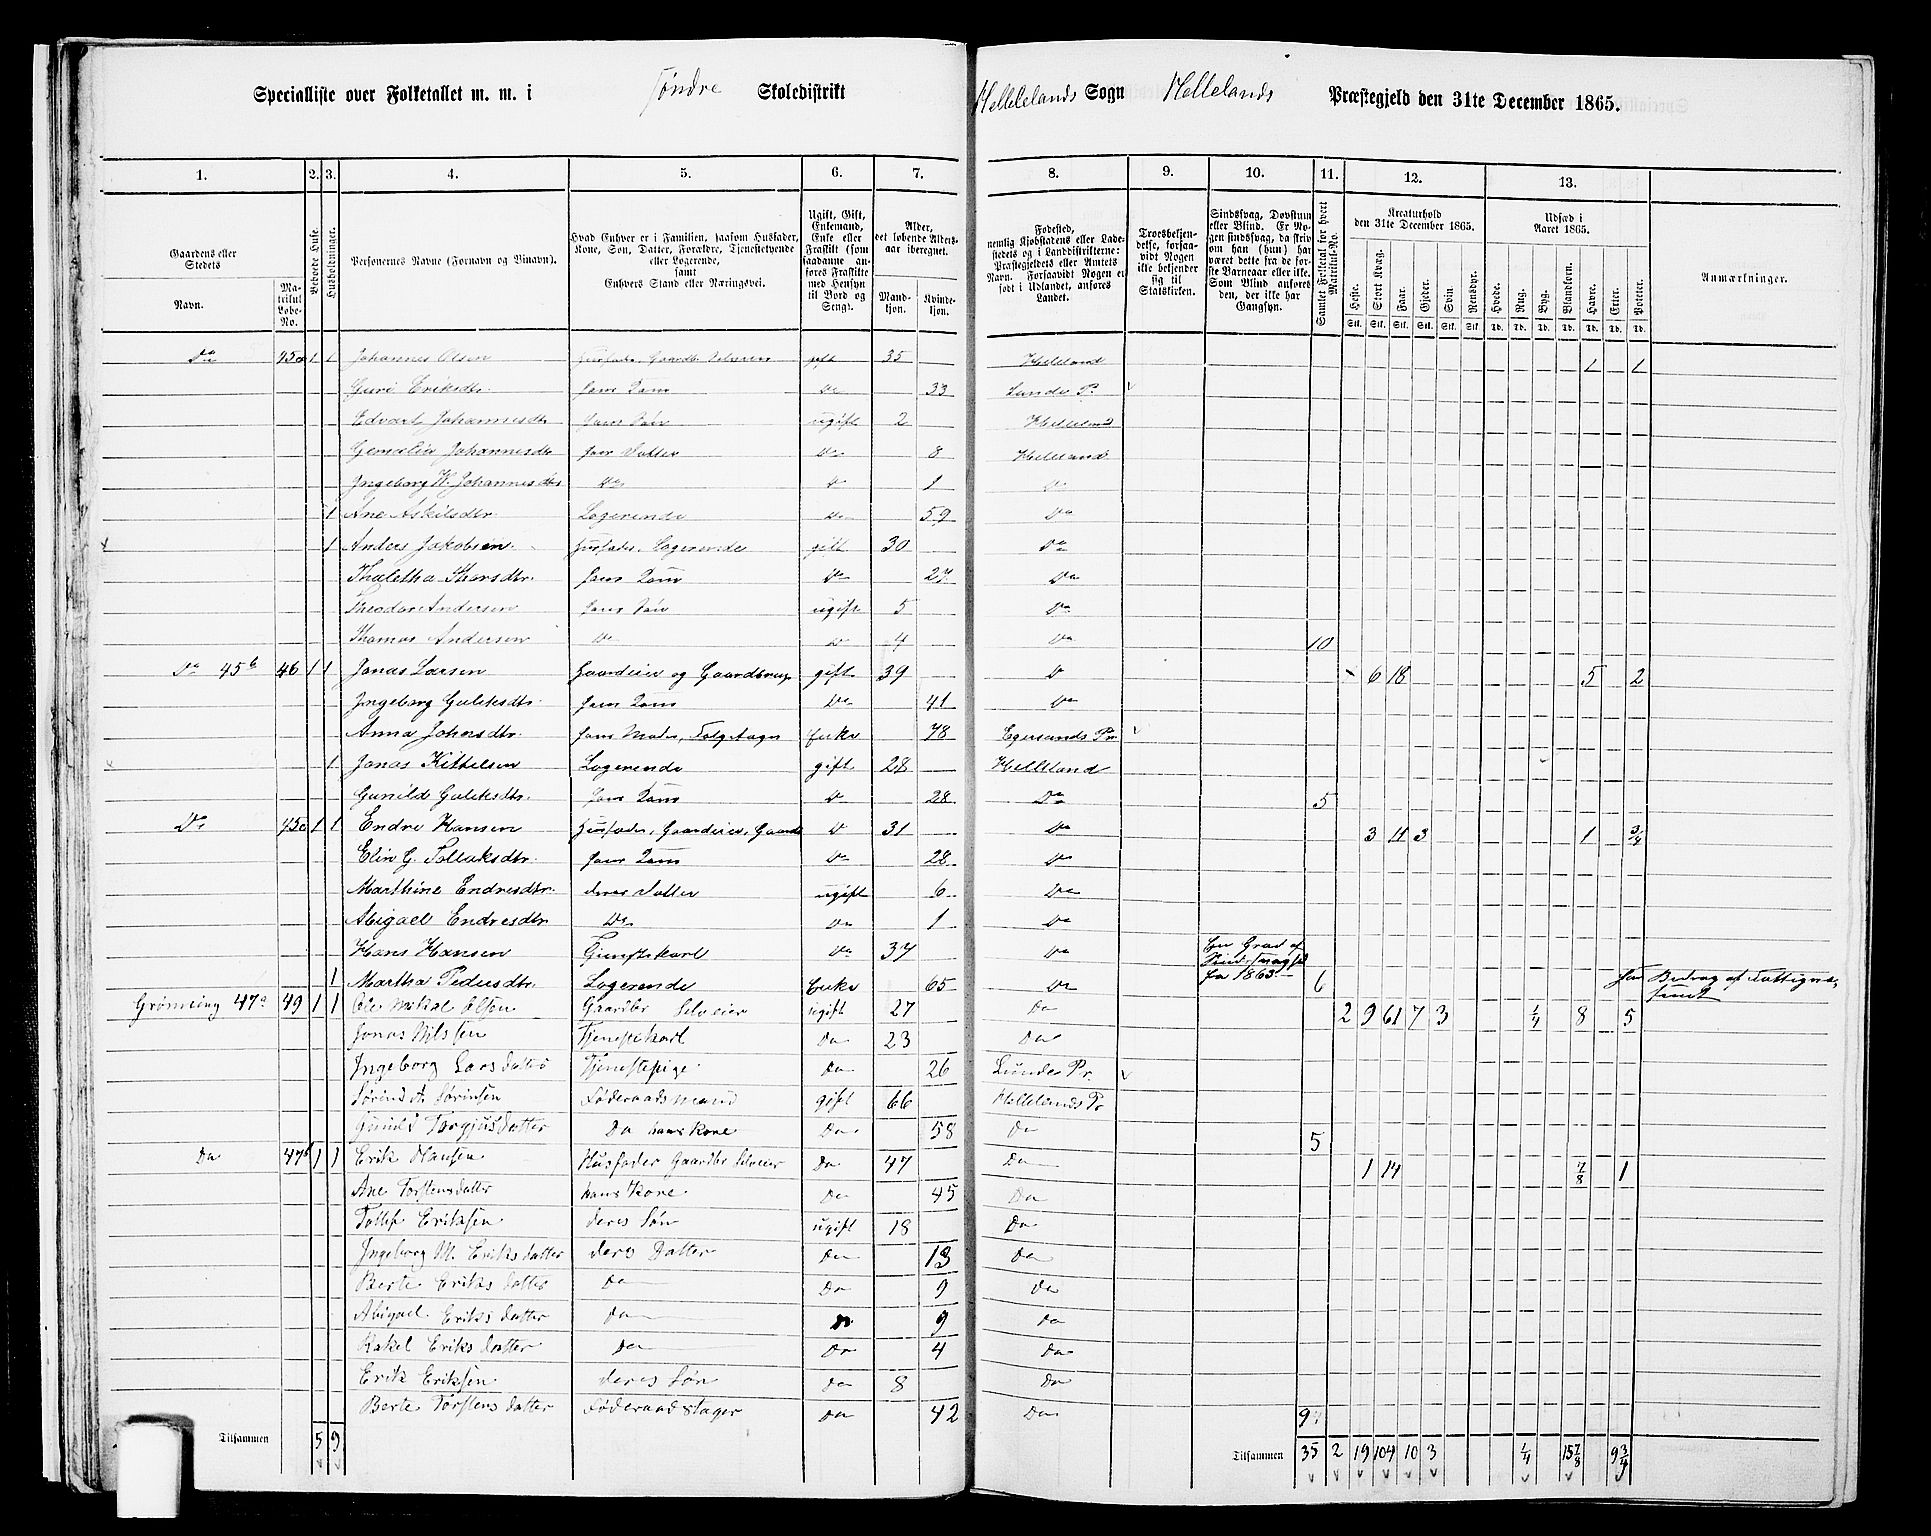 Specialliste over Folketallet m. m. i Söndre Skoledistrikt Hellelands Sogn Hellelands Præstegjeld den 31te December 1865.
1. 2. 3. 4. 5. 6. 7. 8. 9. 10. 11. 12. 13.
Gaardens eller Stedets
Navn.
Matrikul Løbe-No.
Beboede Huse.
Husholdninger.
Personernes Navne (Fornavn og Binavn).
Hvad Enhver er i Familien, saasom Husfader, Kone, Søn, Datter, Forældre, Tjenestetyende eller Logerende, samt Enhvers Stand eller Næringsvei.
Ugift, Gift, Enkemand, Enke eller Fraskilt (som saadanne anføres Fraskilte med Hensyn til Bord og Seng).
Alder, det løbende Aldersaar iberegnet.
Mandkjøn. Kvindekjøn.
Fødested, nemlig Kjøbstadens eller Ladestedets og i Landdistrikterne: Præstegjeldets eller Amtets Navn. Forsaavidt Nogen er født i Udlandet, anføres Landet.
Troesbekjendelse, forsaavidt Nogen ikke bekjender sig til Statskirken.
Sindssvag, Døvstum eller Blind. Er Nogen sindssvag, da skriv om han (hun) har været dette fra de første Barneaar eller ikke. Som Blind anføres den, der ikke har Gangsyn.
Samlet Folketal for hvert Matrikul-No.
Kreaturhold den 31te December 1865.
Heste. Stort Kvæg. Faar. Gjeder. Svin. Rensdyr.
Udsæd i Aaret 1865.
Hvede. Rug. Byg. Blandkorn. Havre. Erter. Poteter.
Anmærkninger.
Do 45a 1 1 Johannes Olsen Husfader, Gaardbr. Selveier gift 35 Helleland 1 1
Guri Eriksdtr. hans Kone Do 33 Lunde P.
Edvart Johannesdtr hans Søn ugift 2 Helleland
Johannesdtr hans Datter Do 8 Helleland
Ingeborg H. Johannesdtr Do D 1 Do
1 Ane Askilsdtr. Logerende Do 59 Do
1 Anders Jakobsen Husfader, Logerende gift 30 Do
Thaletha Larsdtr. hans Kone Do 27 Do
Theodor Andersen hans Søn ugift 5 Do
Thomas Andersen Do D 4 Do 10
Do 45b 46 1 1 Jonas Larsen Gaardeier og Gaardbrug. gift 39 D 6 18 5 2
Ingeborg Guleksdtr. hans Kone Do 41 Do
Anna Johnsdtr. hans Moder, Folgetager Enke 78 Egersunds Pr
1 Jonas Kittelsen Logerende gift 28 Helleland
Gunild Guleksdtr. hans Kone D 28 Do 5
Do 45c 1 1 Endre Hansen Husfader, Gaardeier, Gaardb D 31 Do 3 11 3 1 3/4
Elin G. Tollaksdtr. hans Kone Do 28 Do
Marthine Endresdtr. deres Datter ugift 6 Do
Abigael Endresdtr Do Do 1 Do
Hans Hansen Tjenestekarl Do 37 Do En Grad af Sindssvaghed fra 1863
1 Martha Pedersdtr. Logerende Enke 65 Do 6 har Bidrag af Fattigvæsenet
Grøneing 47a 49 1 1 Ole Mikal Olsen Gaardbr Selveier ugift 27 Do 2 9 61 7 3 1/4 8 5
Jonas Nilssen Tjenestekarl Do 23 Do
Ingeborg Larsdatter Tjenestepige Do 26 Lunde Pr.
Sørend A Sørinsen Føderaadsmand gift 66 Hellelands Pr
Gunild Torgjusdatter Do hans Kone Do 58 Do 5
Do 47b 1 1 Erik Hansen Husfader Gaardbr Selveier Do 47 Do 1 14 7/8 1
Ane Torstensdatter hans Kone Do 45 Do
Tollef Eriksen deres Søn ugift 18 Do
Ingeborg M. Eriksdatter deres Datter Do 13 Do
Berte Eriksdatter Do Do 9 Do
Abigael Eriksdatter Do Do 9 Do
Rakel Eriksdatter Do Do 4 Do
Erik Eriksen deres Søn Do 8 Do
Berte Torstensdatter Føderaadstager Do 42 Do 9
Tilsammen 5 9 Tilsammen 35 2 19 104 10 3 1/4 15 7/8 9 3/4